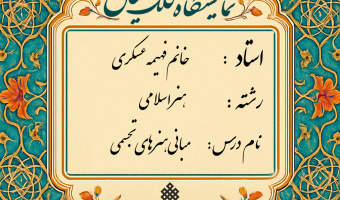 نمایشگاه
استاد : خانم فهیمه عسکری
رشته : هنر اسلامی
نام درس: مبانی هنرهای تجسمی